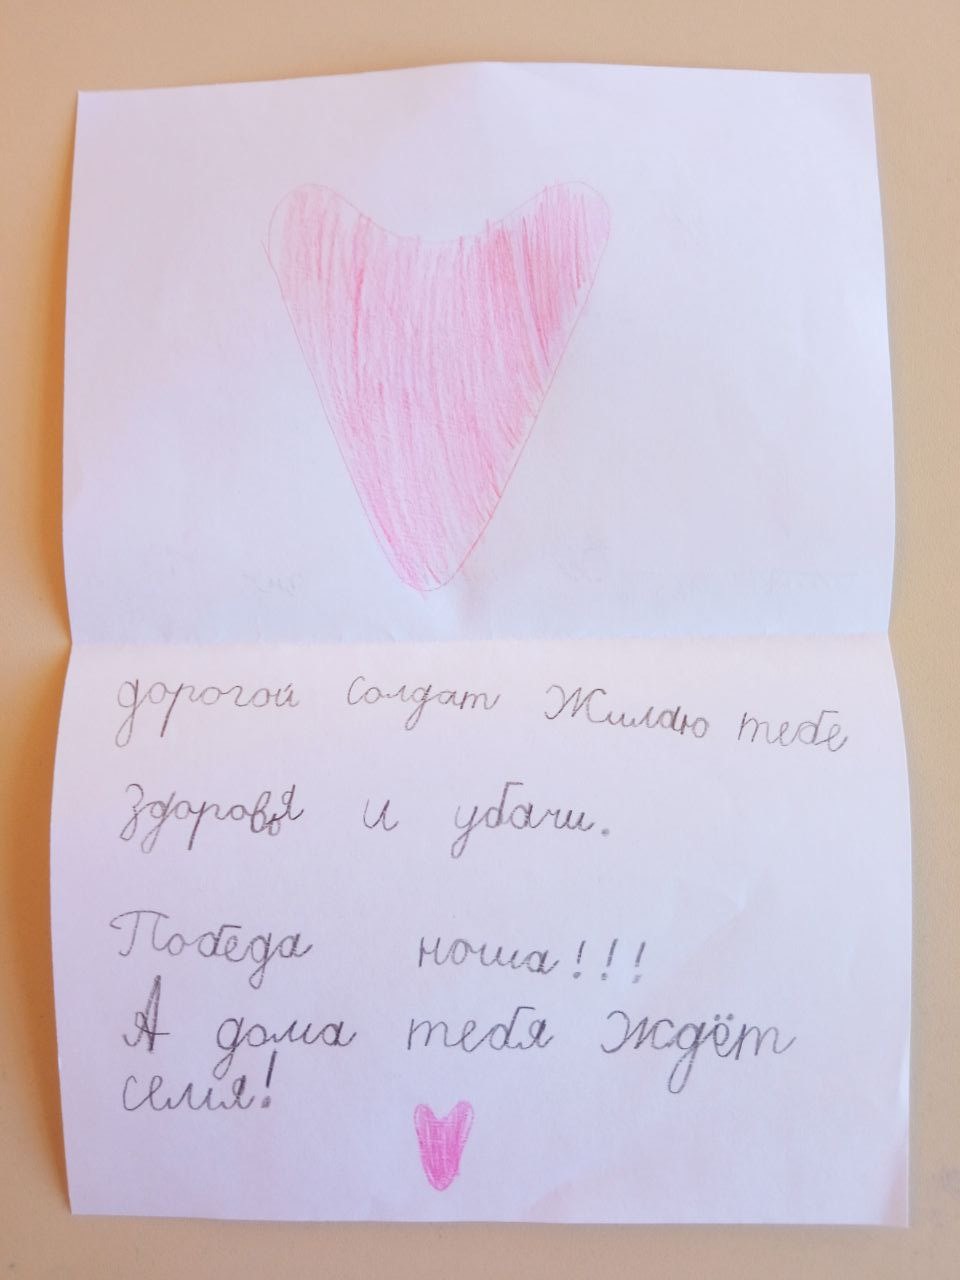 дорогой солдат Жилаю тебе
здоровья и убачи.
Победа ноша!!!
А дома тебя Ждёт
семя!